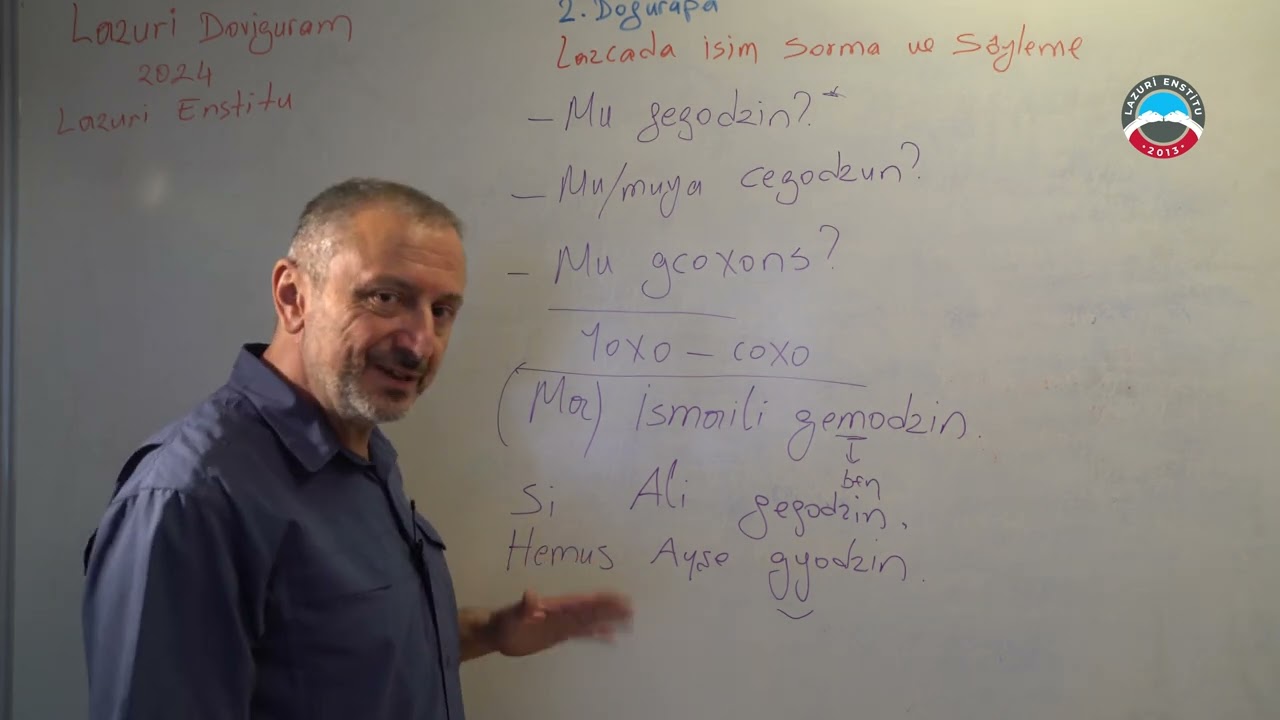 Lazuri Doviguram
2024
Lazuri Enstitu
2. Dogurapa
Lazcada isim sorma ve Söyleme
– Mu gegodzin?
– Mu/muya cegodzun?
– Mu gcoxons?
Yoxo – coxo
(Ma) ismaili gemodzin.
ben
Si Ali gegodzin.
Hemus Ayşe gyodzin.
LAZURİ ENSTİTU
· 2013 ·